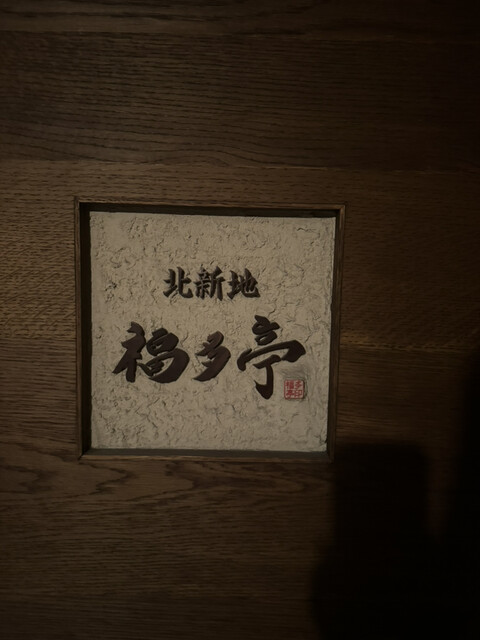 北新地
福多亭